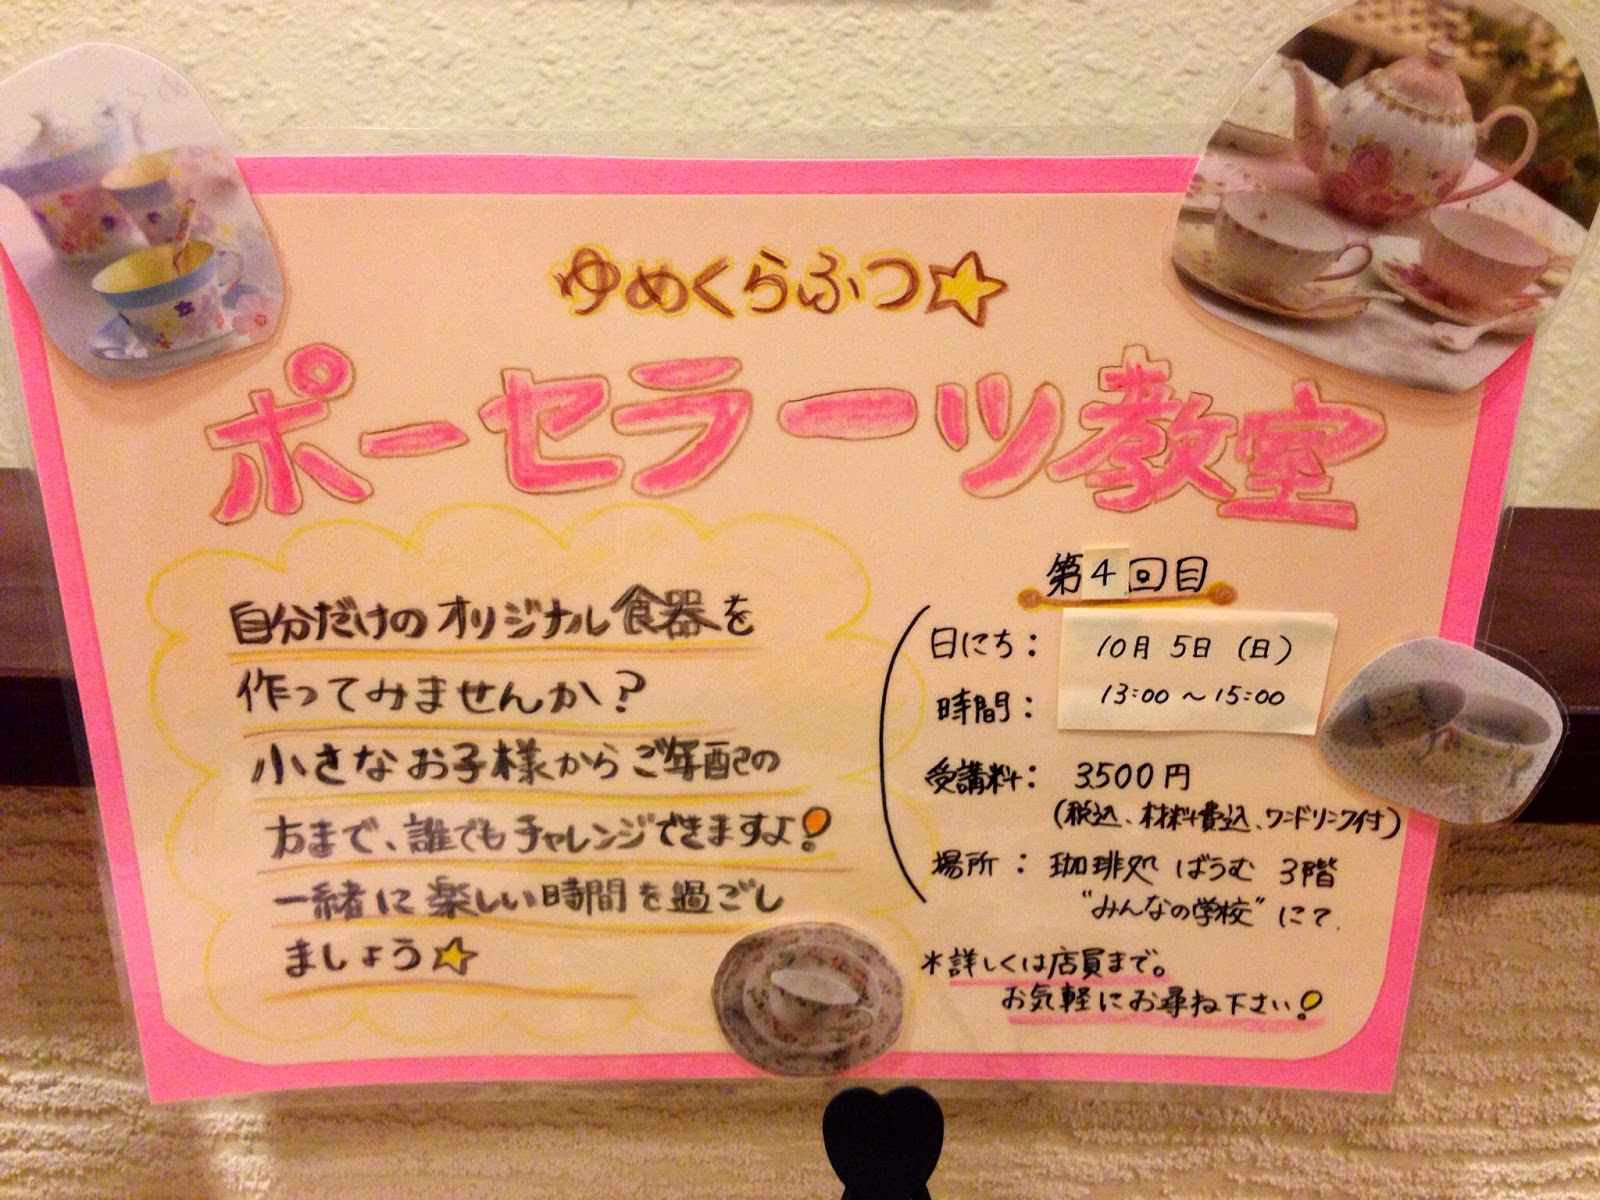 ゆめくらふつ☆
ポーセラーツ教室
自分だけのオリジナル食器を
作ってみませんか?
小さなお子様からご年配の
方まで、誰でもチャレンジできますよ!
一緒に楽しい時間を過ごし
ましょう☆
第4回目
日にち: 10月5日(日)
時間: 13:00~15:00
受講料: 3,500円
(税込、材料費込、ワンドリンク付)
場所: 珈琲処 ばうむ 3階
"みんなの学校"にて.
*詳しくは店員まで。
お気軽にお尋ね下さい!